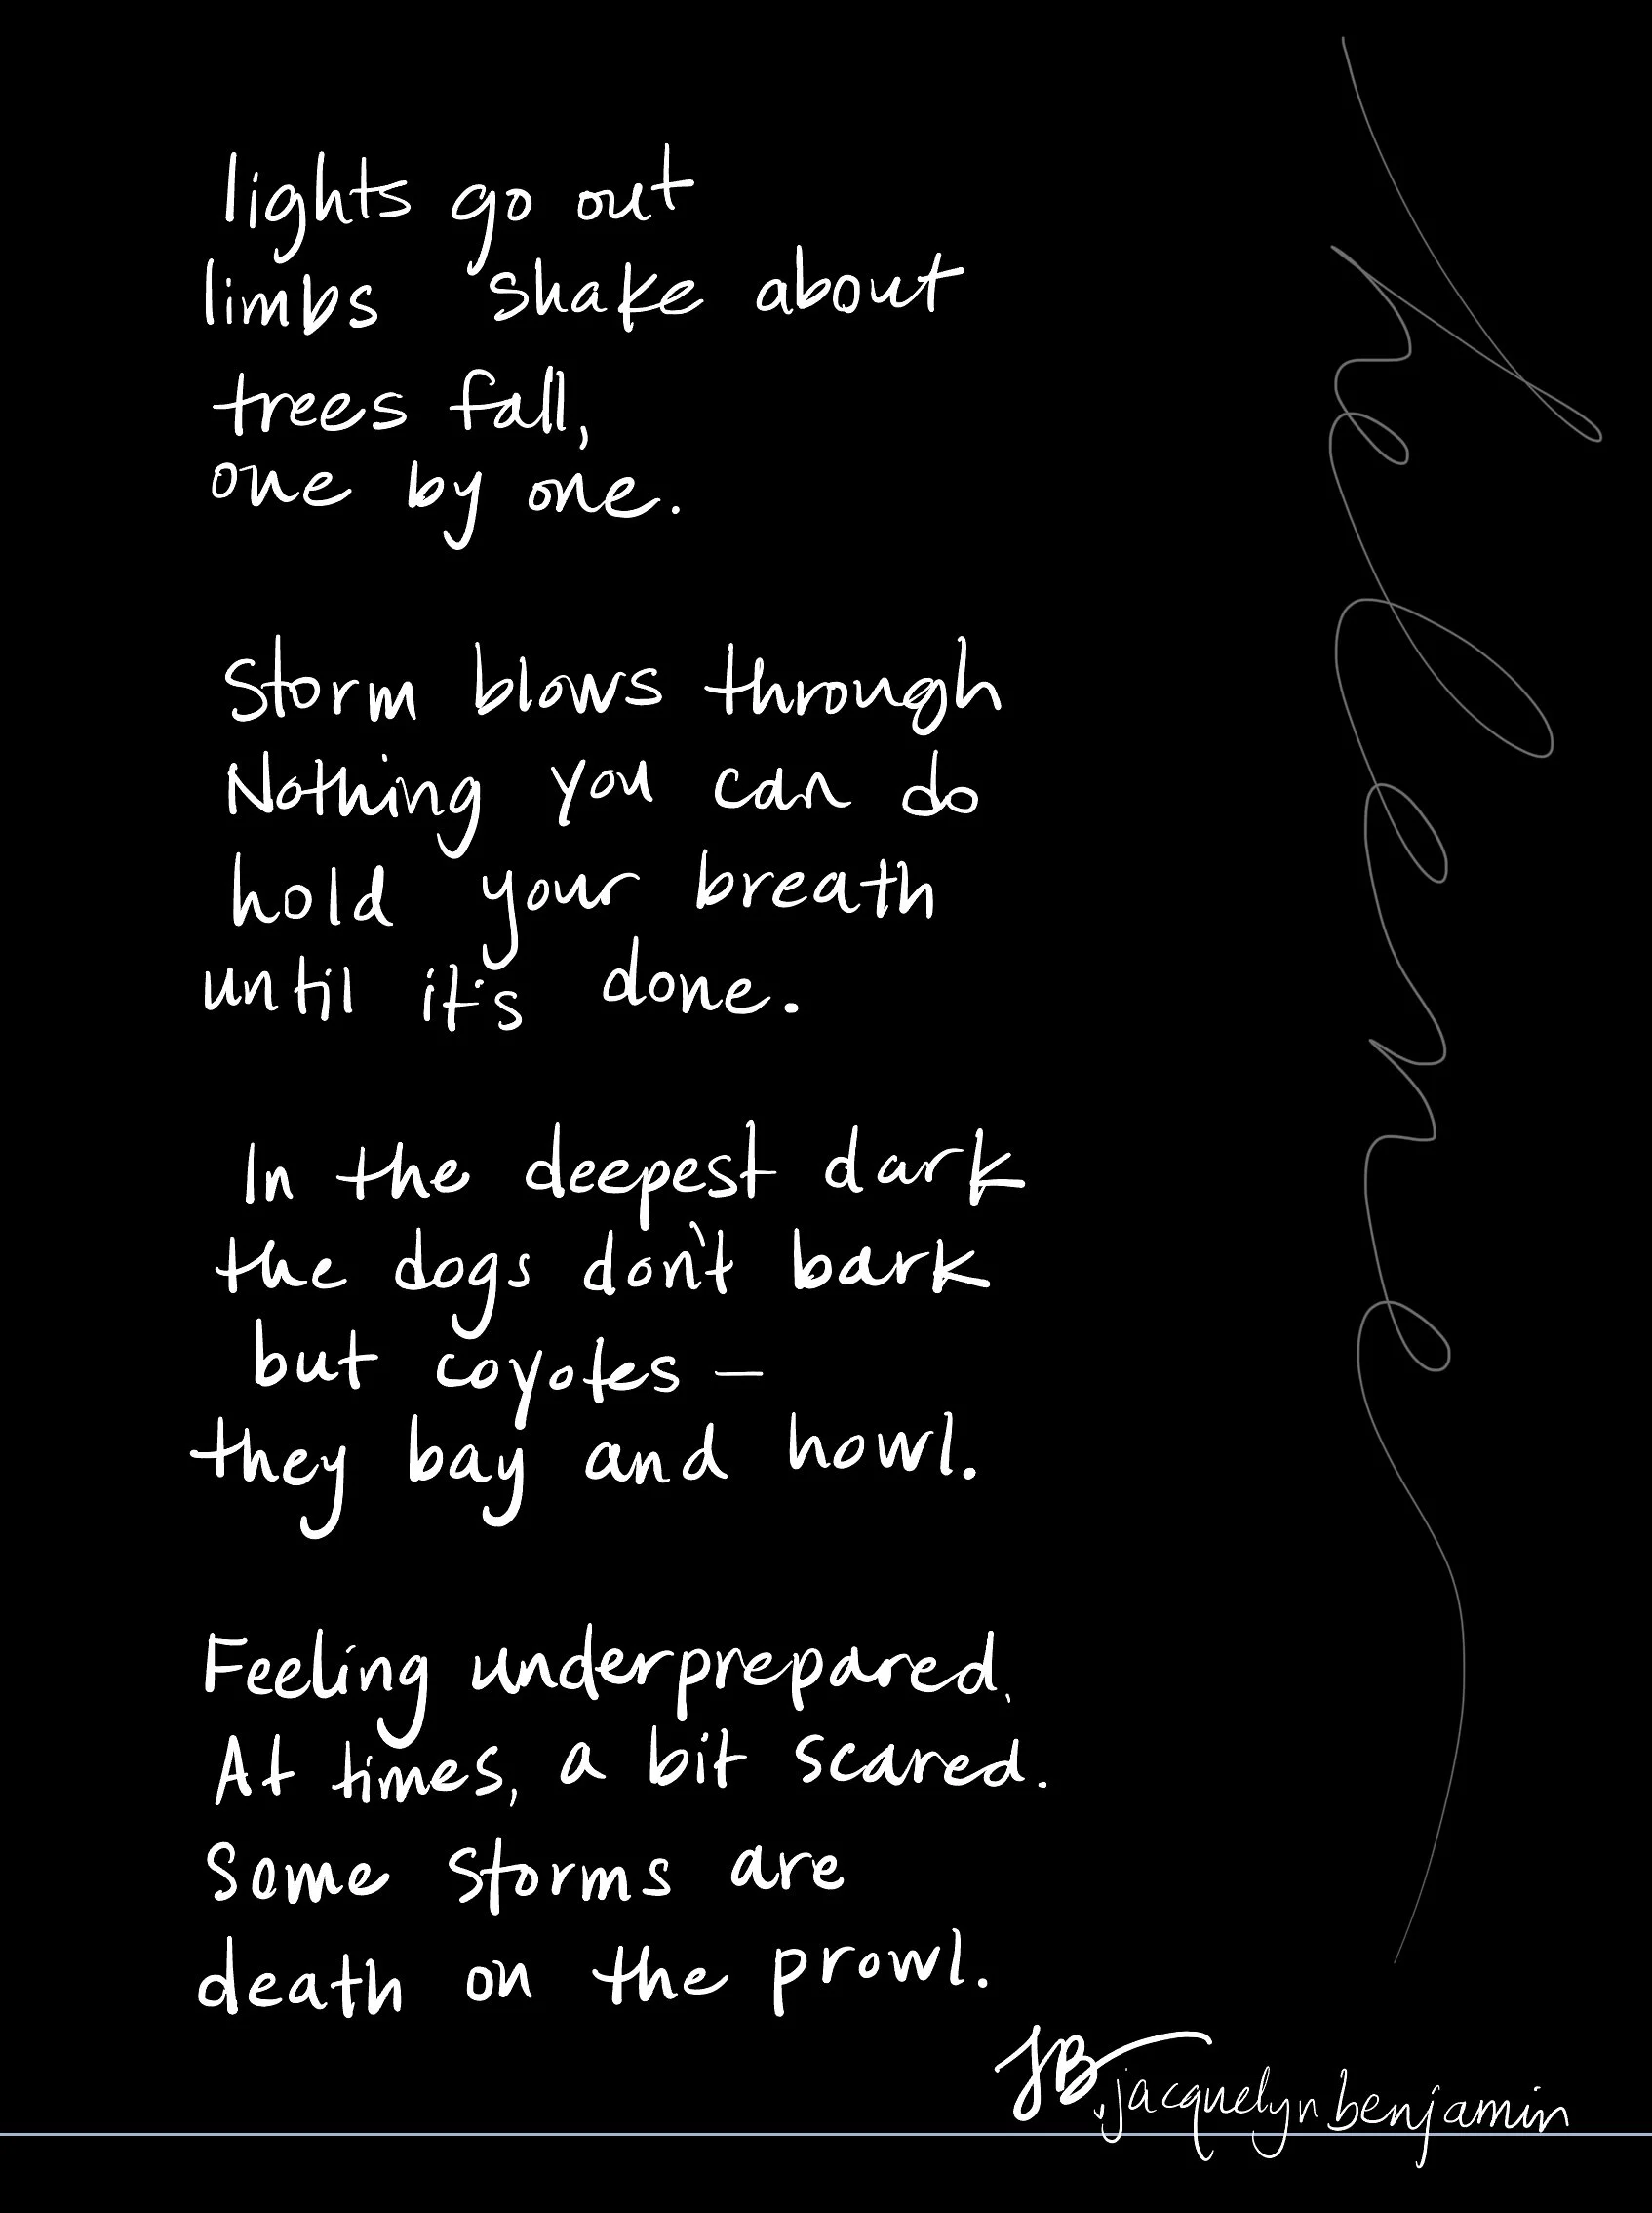 lights go out
limbs shake about
trees fall,
one by one.
Storm blows through
Nothing you can do
hold your breath
until it's done.
In the deepest dark
the dogs don't bark
but coyotes —
they bay and howl.
Feeling underprepared,
At times, a bit scared.
Some storms are
death on the prowl.
JB
jacquelyn benjamin